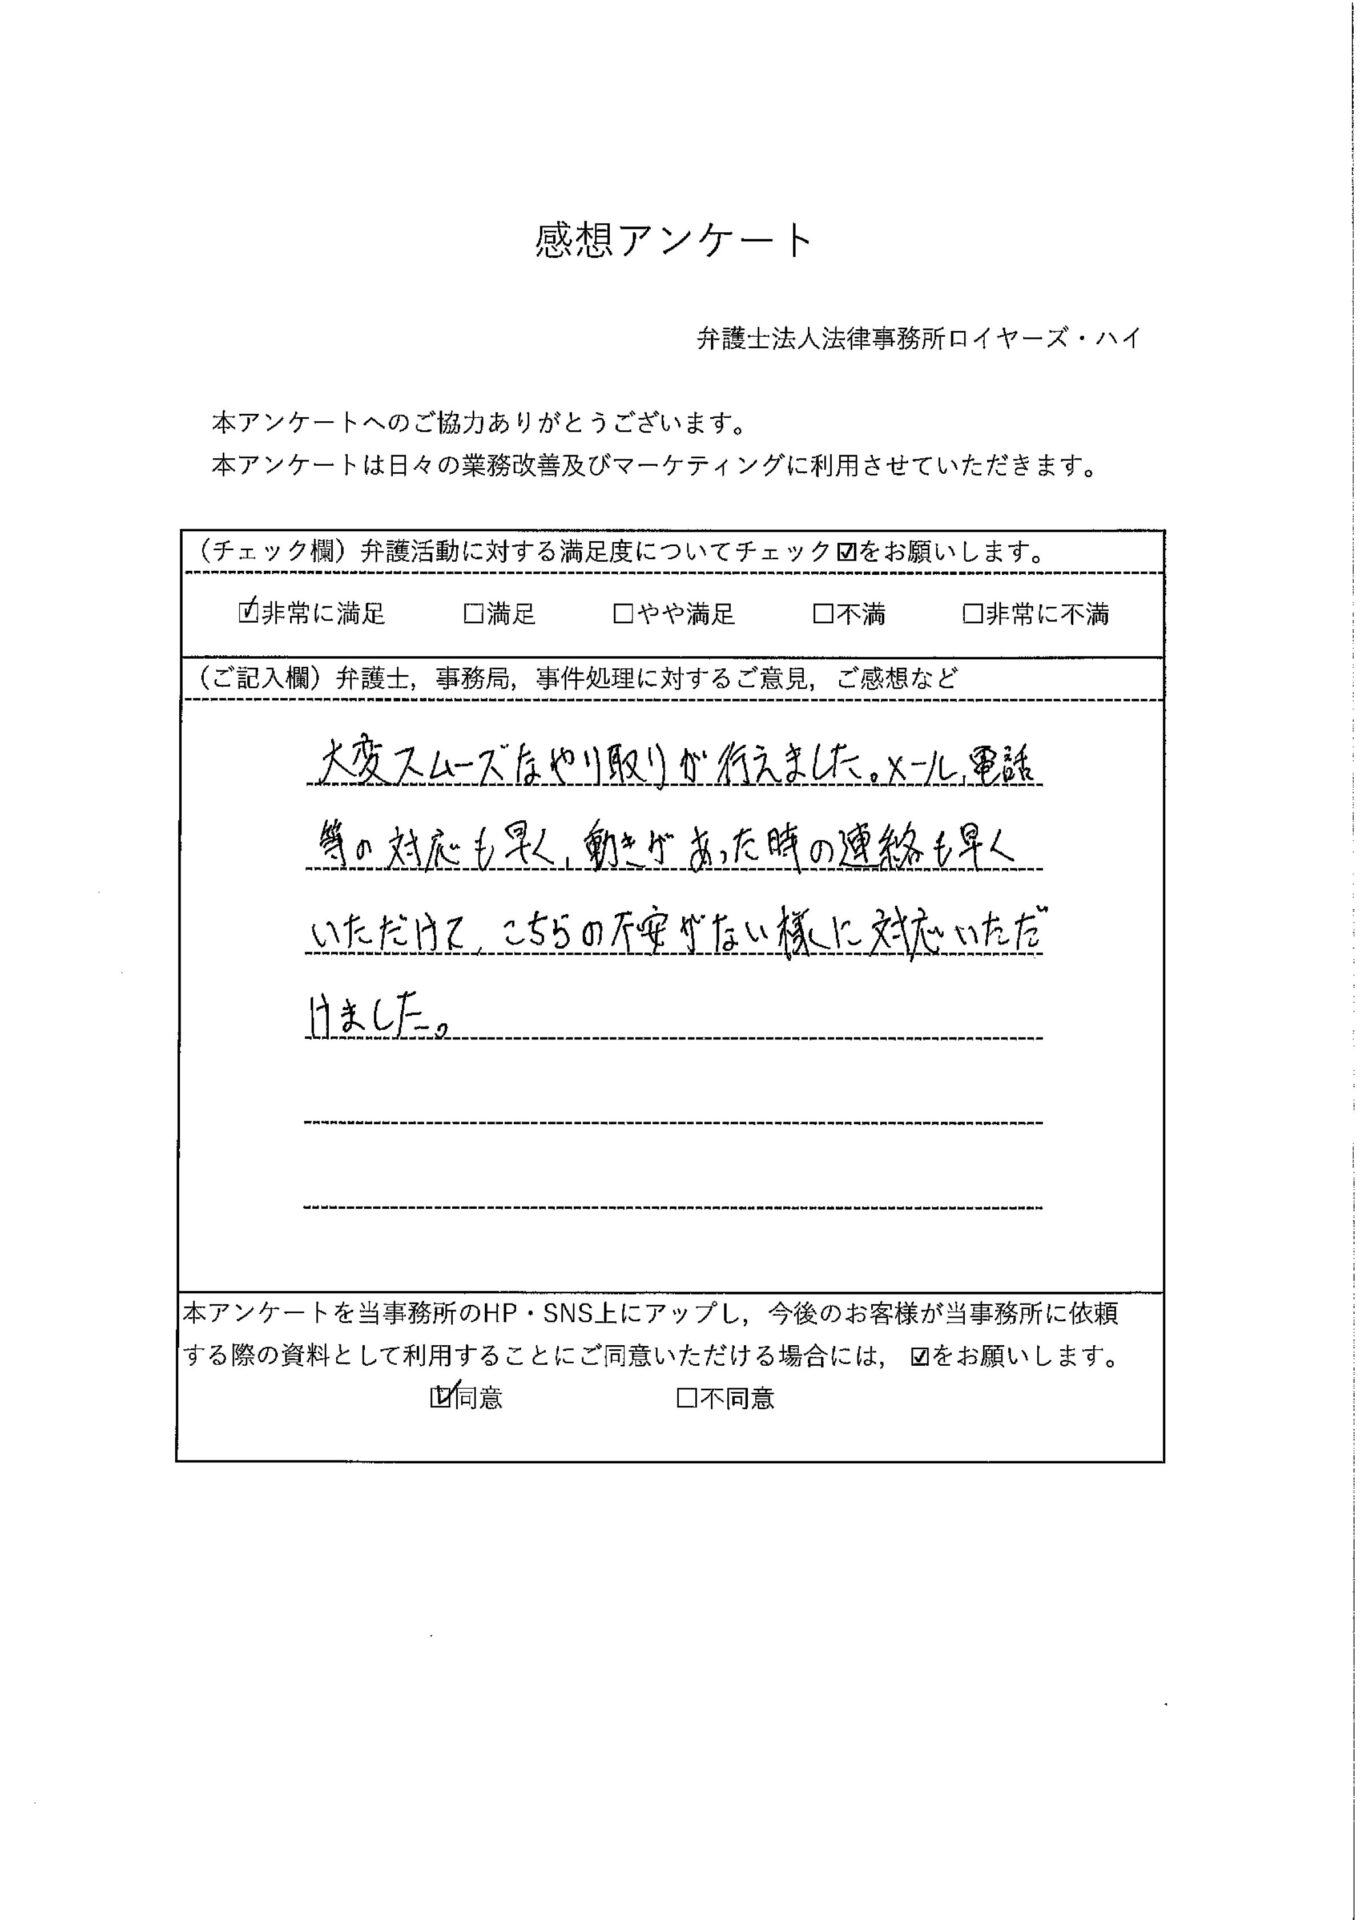 感想アンケート
弁護士法人法律事務所ロイヤーズ・ハイ
本アンケートへのご協力ありがとうございます。
本アンケートは日々の業務改善及びマーケティングに利用させていただきます。
（チェック欄）弁護活動に対する満足度についてチェック☑をお願いします。
☑非常に満足 □満足 □やや満足 □不満 □非常に不満
（ご記入欄）弁護士，事務局，事件処理に対するご意見，ご感想など
大変スムーズなやり取りが行えました。メール、電話
等の対応も早く、動きがあった時の連絡も早く
いただけて、こちらの不安がない様に対応いただ
けました。
本アンケートを当事務所のHP・SNS上にアップし，今後のお客様が当事務所に依頼
する際の資料として利用することにご同意いただける場合には，☑をお願いします。
☑同意 □不同意